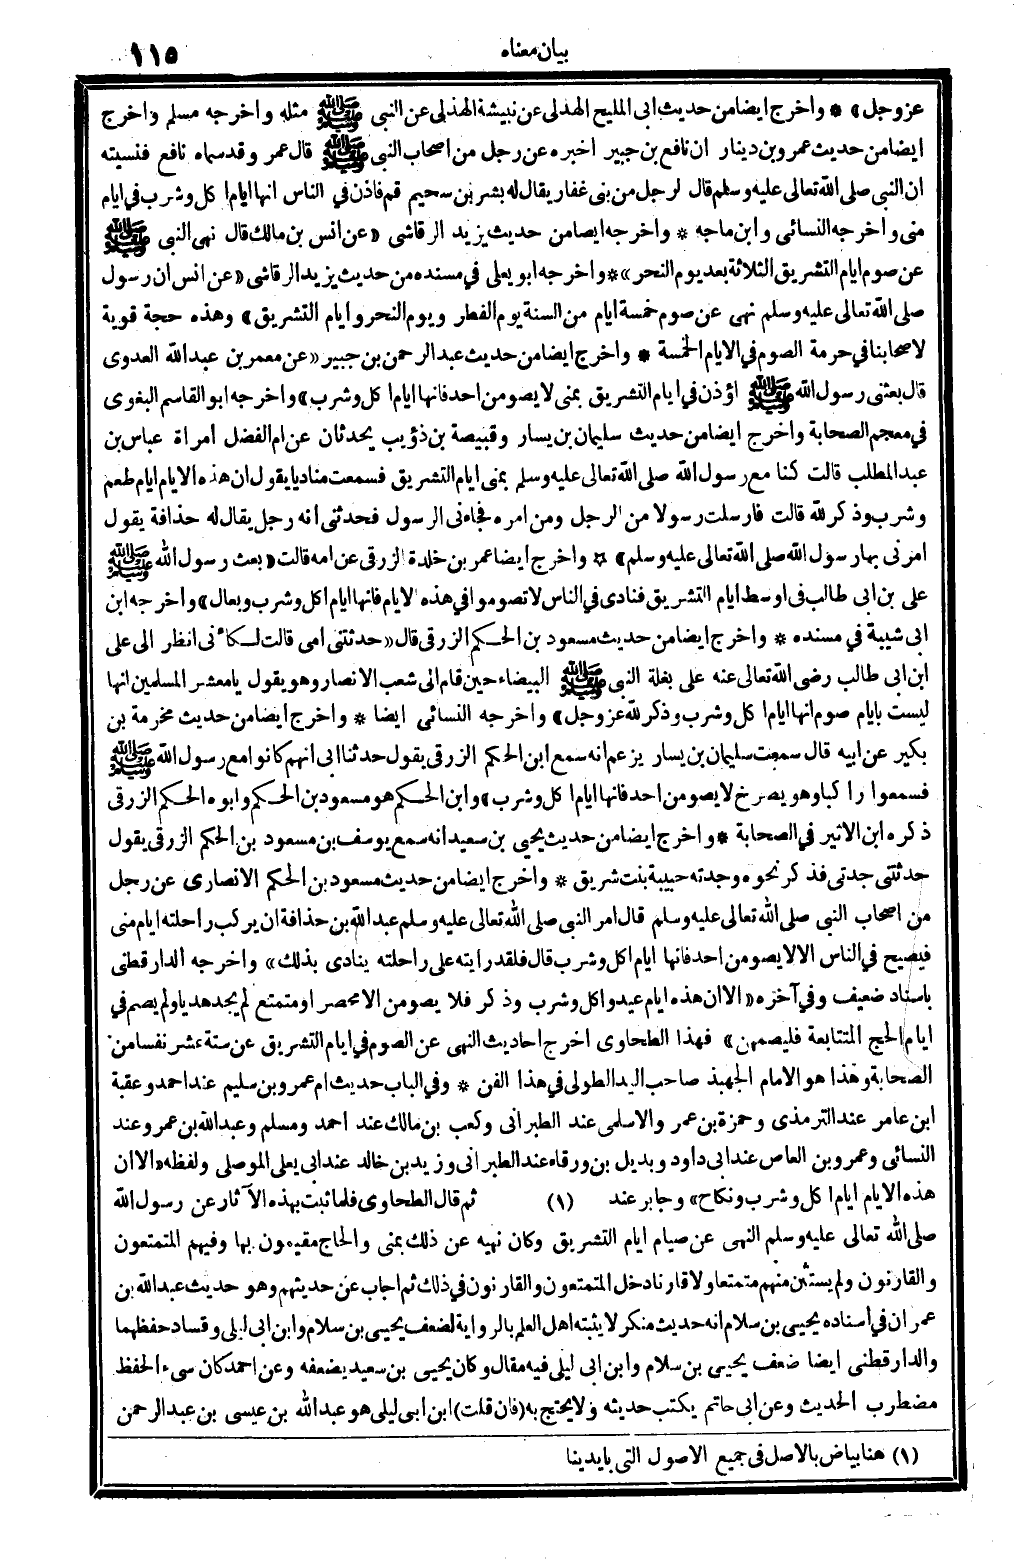 بيان معناه
١١٥
عز وجل» * واخرج ايضا من حديث ابى المليح الهذلى عن نبيشة الهذلى عن النبى ﷺ مثله واخرجه مسلم واخرج
ايضا من حديث عمرو بن دينار ان نافع بن جبير اخبره عن رجل من اصحاب النبى ﷺ قال عمر وقد سماه نافع فنسيته
ان النبى صلى الله تعالى عليه وسلم قال لرجل من بنى غفار يقال له بشر بن سحيم قم فاذن في الناس انها ايام اكل وشرب في ايام
منى واخرجه النسائى وابن ماجه * واخرجه ايضا من حديث يزيد الرقاشى «عن انس بن مالك قال نهى النبى ﷺ
عن صوم ايام التشريق الثلاثة بعد يوم النحر» * واخرجه ابو يعلى في مسنده من حديث يزيد الرقاشى «عن انس ان رسول
صلى الله تعالى عليه وسلم نهى عن صوم خمسة ايام من السنة يوم الفطر ويوم النحر وايام التشريق» وهذه حجة قوية
لاصحابنا في حرمة الصوم في الايام الخمسة * واخرج ايضا من حديث عبد الرحمن بن جبير «عن معمر بن عبد الله العدوى
قال بعثنى رسول الله ﷺ اؤذن في ايام التشريق بمنى لا يصومن احد فانها ايام اكل وشرب» واخرجه ابو القاسم البغوى
في معجم الصحابة واخرج ايضا من حديث سليمان بن يسار وقبيصة بن ذؤيب يحدثان عن ام الفضل امراة عباس بن
عبد المطلب قالت كنا مع رسول الله صلى الله تعالى عليه وسلم بمنى ايام التشريق فسمعت مناديا يقول ان هذه الايام ايام طعم
وشرب وذكر لله قالت فارسلت رسولا من الرجل ومن امره فجاءنى الرسول فحدثنى انه رجل يقال له حذافة يقول
امرنى بها رسول الله صلى الله تعالى عليه وسلم» * واخرج ايضا عمر بن خلدة الزرقى عن امه قالت «بعث رسول الله ﷺ
على بن ابى طالب فى اوسط ايام التشريق فنادى في الناس لا تصوموا في هذه الايام فانها ايام اكل وشرب وبعال» واخرجه ابن
ابى شيبة في مسنده * واخرج ايضا من حديث مسعود بن الحكم الزرقى قال «حدثتنى امى قالت لكأنى انظر الى على
ابن ابى طالب رضى الله تعالى عنه على بغلة النبى ﷺ البيضاء حين قام الى شعب الانصار وهو يقول يا معشر المسلمين انها
ليست بايام صوم انها ايام اكل وشرب وذكر لله عز وجل» واخرجه النسائى ايضا * واخرج ايضا من حديث مخرمة بن
بكير عن ابيه قال سمعت سليمان بن يسار يزعم انه سمع ابن الحكم الزرقى يقول حدثنا ابى انهم كانوا مع رسول الله ﷺ
فسمعوا راكبا وهو يصرخ لا يصومن احد فانها ايام اكل وشرب» وابن الحكم هو مسعود بن الحكم وابوه الحكم الزرقى
ذكره ابن الاثير في الصحابة * واخرج ايضا من حديث يحيى بن سعيد انه سمع يوسف بن مسعود بن الحكم الزرقى يقول
حدثتنى جدتى فذكر نحوه وجدته حبيبة بنت شريق * واخرج ايضا من حديث مسعود بن الحكم الانصارى عن رجل
من اصحاب النبى صلى الله تعالى عليه وسلم قال امر النبى صلى الله تعالى عليه وسلم عبد الله بن حذافة ان يركب راحلته ايام منى
فيصيح في الناس الا لا يصومن احد فانها ايام اكل وشرب قال فلقد رايته على راحلته ينادى بذلك» واخرجه الدارقطنى
باسناد ضعيف وفي آخره «الا ان هذه ايام عيد واكل وشرب وذكر فلا يصومن الا محصر او متمتع لم يجد هديا ولم يصم في
ايام الحج المتتابعة فليصمهن» فهذا الطحاوى اخرج احاديث النهى عن الصوم في ايام التشريق عن ستة عشر نفسا من
الصحابة وهذا هو الامام الجهبذ صاحب اليد الطولى في هذا الفن * وفي الباب حديث ام عمرو بن سليم عند احمد وعقبة
ابن عامر عند الترمذى وحمزة بن عمر والاسلمى عند الطبرانى وكعب بن مالك عند احمد ومسلم وعبد الله بن عمر وعند
النسائى وعمرو بن العاص عند ابى داود وبديل بن ورقاء عند الطبرانى وزيد بن خالد عند ابى يعلى الموصلى ولفظه «الا ان
هذه الايام ايام اكل وشرب ونكاح» وجابر عند (١) ثم قال الطحاوى فلما ثبت بهذه الآثار عن رسول الله
صلى الله تعالى عليه وسلم النهى عن صيام ايام التشريق وكان نهيه عن ذلك بمنى والحاج مقيمون بها وفيهم المتمتعون
والقارنون ولم يستثن منهم متمتعا ولا قارنا دخل المتمتعون والقارنون في ذلك ثم اجاب عن حديثهم وهو حديث عبد الله بن
عمر ان في اسناده يحيى بن سلام انه حديث منكر لا يثبته اهل العلم بالرواية لضعف يحيى بن سلام وابن ابى ليلى وفساد حفظهما
والدارقطنى ايضا ضعف يحيى بن سلام وابن ابى ليلى فيه مقال وكان يحيى بن سعيد يضعفه وعن احمد كان سىء الحفظ
مضطرب الحديث وعن ابى حاتم يكتب حديثه ولا يحتج به (فان قلت) ابن ابى ليلى هو عبد الله بن عيسى بن عبد الرحمن
(١) هنا بياض بالاصل فى جميع الاصول التى بايدينا